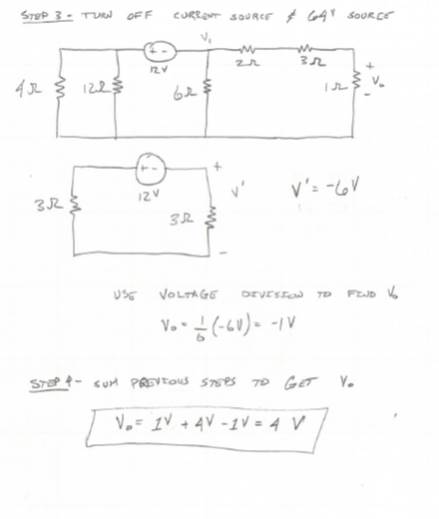 STEP 3 - TURN OFF CURRENT SOURCE & 64V SOURCE
V₁
+ -
12V
2Ω
3Ω
4Ω
12Ω
6Ω
1Ω
+
V₀
-
+ -
12V
+
V'
-
V' = -6V
3Ω
3Ω
USE VOLTAGE DIVISION TO FIND V₀
V₀ = 1/6 (-6V) = -1V
STEP 4 - SUM PREVIOUS STEPS TO GET V₀
V₀ = 1V + 4V - 1V = 4 V